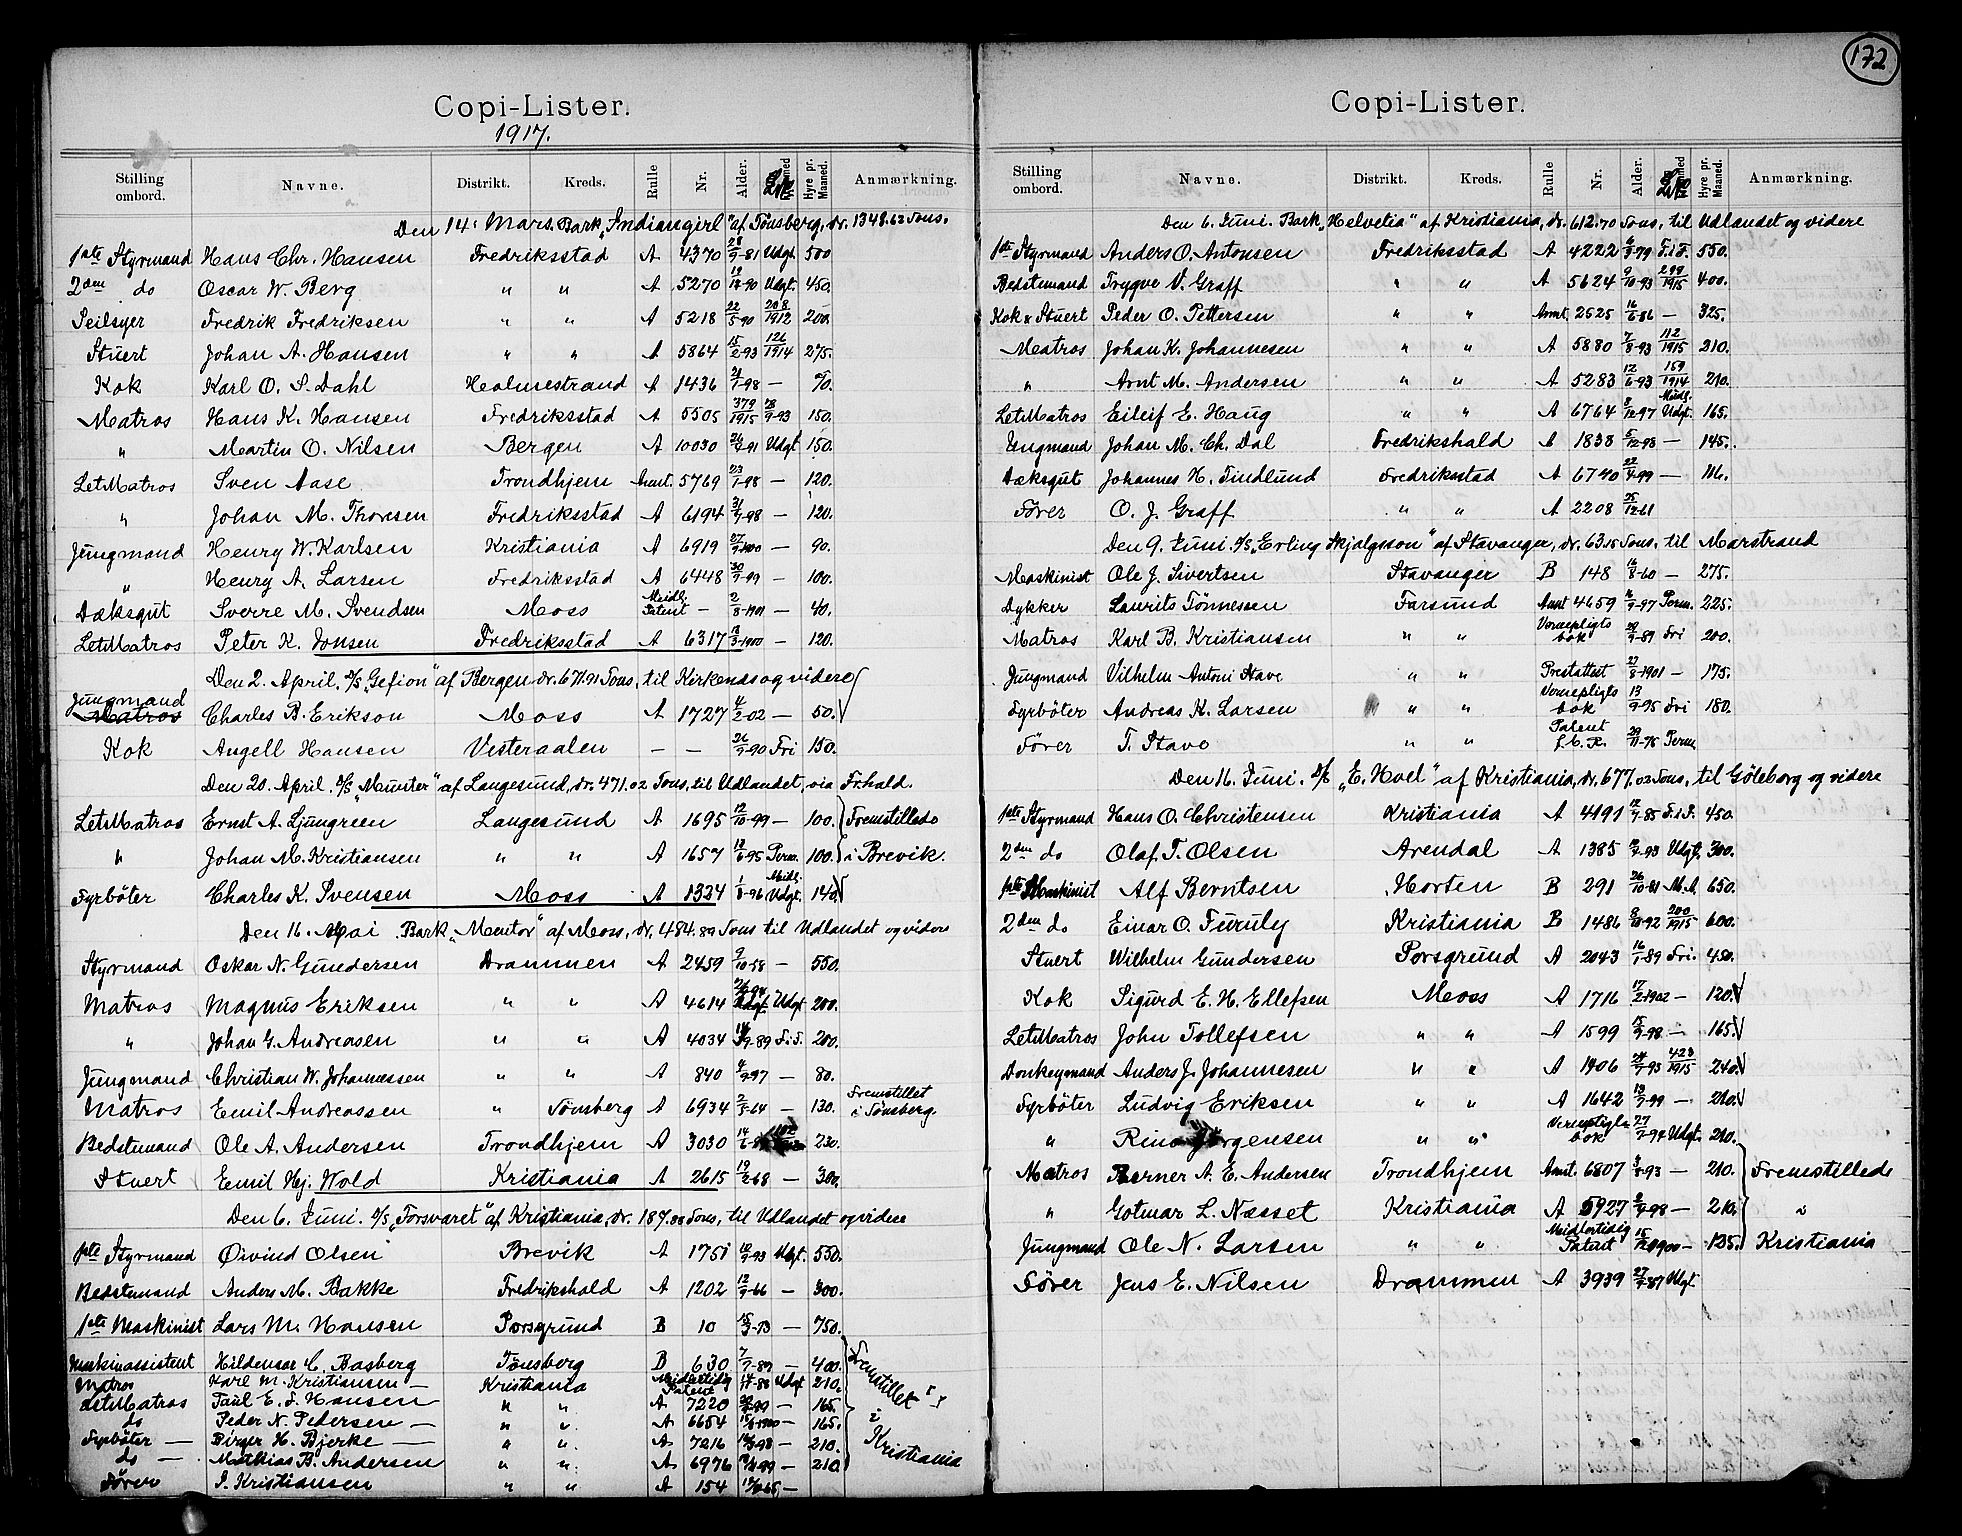 172
Copi-Lister.
1917.
Stilling ombord. Navne. Distrikt. Kreds. Rulle Nr. Alder. Hyre pr. Maaned. Anmærkning.
Den 14. Mars. Bark „Indiangirl" af Tønsberg, dr. 1348.62 Tons.
1ste Styrmand Hans Chr. Hansen Fredriksstad A 4370 28/9-81 Udgt. 500
2den do Oscar W. Berg " " A 5270 Udgt. 450.
Seilsyer Fredrik Fredriksen " " A 5218 22/5-90 208/1912 200.
Stuert Johan A. Hansen " " A 5864 15/2-93 126/1914 275.
Kok Karl O. S. Dahl Holmestrand A 1436 21/1-98 — 70.
Matros Hans K. Hansen Fredriksstad A 5505 379/1915 150.
" Martin O. Nilsen Bergen A 10030 Udgt. 150.
LetMatros Sven Aase Trondhjem Amt. 5769 23/1-98 — 120.
" Johan M. Thoresen Fredriksstad A 6194 — 120.
Jungmand Henry W. Karlsen Kristiania A 6919 — 90.
" Henry A. Larsen Fredriksstad A 6448 30/9-99 — 100.
Dæksgut Sverre M. Svendsen Moss Meidl. Patent — 2/8-1901 — 40.
LetMatros Peter K. Jonsen Fredriksstad A 6317 13/3-1900 — 120.
Den 2. April. D/S „Gefion" af Bergen dr. 671.91 Tons, til Kirkenes og videre
Jungmand
Matros Charles B. Erikson Moss A 1727 4/2-02 — 50.
Kok Angell Hansen Vesteraalen — — 26/9-90 Fri 150.
Den 20. April. D/S „Munster" af Langesund, dr. 471.02 Tons, til Udlandet, via Fr.hald.
LetMatros Ernst A. Ljungreen Langesund A 1695 12/10-99 — 100. Fremstillede
" Johan M. Kristiansen " " A 1657 13/6-95 Perm. 100. i Brevik.
Fyrbøter Charles K. Svensen Moss A 1324 1/8-96 Meidl. Udgt. 140.
Den 16. Mai. Bark „Mentor" af Moss, dr. 484.89 Tons til Udlandet og videre
Styrmand Oskar N. Gundersen Drammen A 2459 9/10-58 — 550.
Matros Magnus Eriksen " " A 4614 Udgt. 200.
" Johan G. Andreasen " " A 4034 F.i.F. 200.
Jungmand Christian W. Johannessen " " A 840 — 80.
Matros Emil Andreassen " Tønsberg A 6934 2/5-64 — 130. Fremstillet i Tønsberg.
Bedstemand Ole A. Andersen Trondhjem A 3030 230.
Stuert Emil Hj. Wold Kristiania A 2615 19/2-68 — 300.
Den 6. Juni. D/S „Forsvaret" af Kristiania, dr. 187.88 Tons, til Udlandet og videre
1ste Styrmand Øivind Olsen Brevik A 1751 Udgt. 550.
Bedstemand Anders M. Bakke Fredrikshald A 1202 12/9-66 — 300.
1ste Maskinist Lars M. Hansen Porsgrund B 10 — 750.
Maskinassistent Hildensar C. Basberg Tønsberg B 630 7/7-89 — 400.
Matros Karl M. Kristiansen — Kristiania Meidlertidig Patent Udgt 210.
LetMatros Paul E. F. Hansen " " A 7220 — 165.
do Peder N. Pedersen — " " A 6654 — 165.
Fyrbøter — Birger H. Bjerke — " " A 7216 — 210.
do — Mathias B. Andersen " " A 6976 — 210.
Fører S. Kristiansen " " A 154 —
Fremstillet i Kristiania
Copi-Lister.
Stilling ombord. Navne. Distrikt. Kreds. Rulle Nr. Alder. Hyre pr. Maaned. Anmærkning.
Den 6. Juni. Bark „Helvetia" af Kristiania, dr. 612.70 Tons, til Udlandet og videre
1ste Styrmand Anders O. Antonsen Fredriksstad A 4222 F.i.F. 550.
Bedstemand Trygve V. Graff " " A 5624 9/10-93 299/1915 400.
Kok & Stuert Peder O. Pettersen " " Amt. 2525 16/6-86 — 325.
Matros Johan K. Johannesen " " A 5880 7/8-93 112/1915 210.
" Arnt M. Andersen " " A 5283 12/6-93 159/1914 210.
LetMatros Eileif E. Haug " " A 6764 Meidl. Udgt. 165.
Jungmand Johan M. Ch. Dal Fredrikshald A 1838 5/12-98 — 145.
Dæksgut Johannes H. Tindlund Fredriksstad A 6740 — 116.
Fører O. J. Graff " " A 2208 25/12-61
Den 9. Juni. D/S „Erling Skjalgsson" af Stavanger, dr. 63.15 Tons, til Marstrand
Maskinist Ole J. Sivertsen Stavanger B 148 16/8-60 — 275.
Dykker Laurits Tønnessen Farsund Amt 4659 Perm. 225.
Matros Karl B. Kristiansen " " Vernepligts bok Fri 200.
Jungmand Vilhelm Antoni Stave " " Prestattest 27/8-1901 — 175.
Fyrbøter Andreas K. Larsen " " Vernepligts bok 13/9-95 Fri 180.
Fører T. Stave " " Patent 29/11-75 Perm.
Den 16. Juni. D/S „E. Hoel" af Kristiania, dr. 677.02 Tons, til Göteborg og videre
1ste Styrmand Hans O. Christensen Kristiania A 4191 F.i.F. 450.
2den do Olaf T. Olsen Arendal A 1385 Udgt. 300.
1ste Maskinist Alf Berntsen Horten B 291 26/10-81 M.A. 650.
2den do Einar O. Furuly Kristiania B 1486 8/10-92 200/1915 600.
Stuert Wilhelm Gundersen Porsgrund A 2043 16/1-89 Fri. 450.
Kok Sigurd E. H. Ellefsen Moss A 1716 17/2-1902 — 120.
LetMatros John Tollefsen " " A 1599 15/9-98 — 165.
Donkeymand Anders J. Johannesen " " A 1406 423/1915 240.
Fyrbøter Ludvig Eriksen " " A 1642 — 210.
" Rino Jørgensen " " Vernepligts bok Udgt. 210.
Matros Berner A. E. Andersen Trondhjem Amt. 6807 — 210. Fremstillede
" Gotmar L. Næsset Kristiania A 5927 — 210. "
Jungmand Ole N. Larsen " " Meidlertidig Patent — 135. Kristiania
Fører Jens E. Nilsen Drammen A 3939 Udgt.